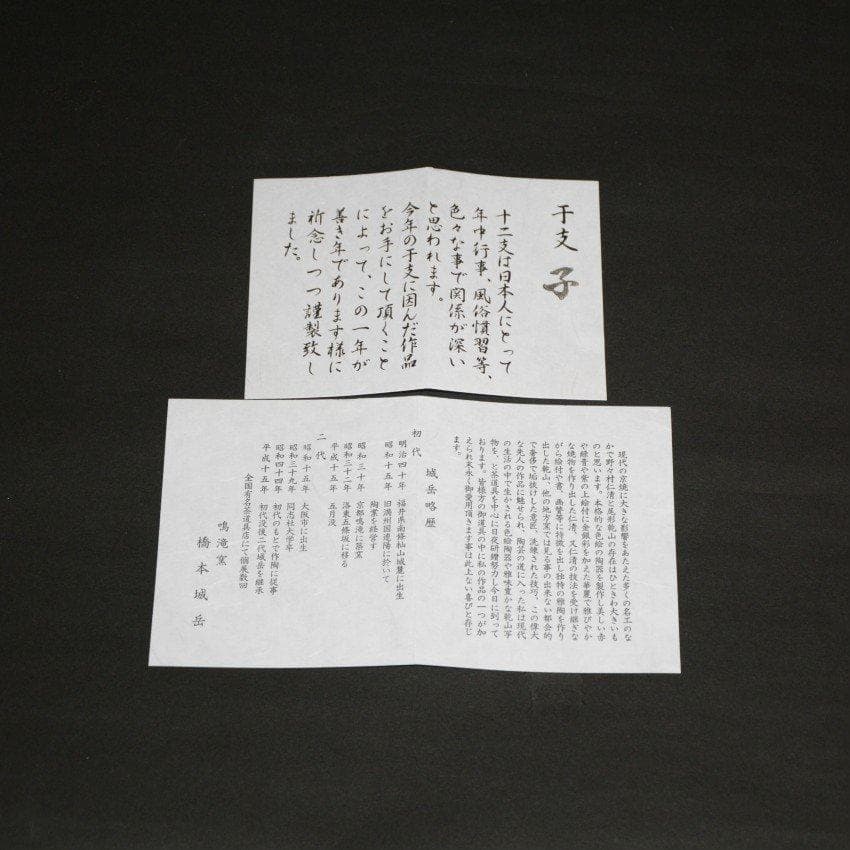 干支 子
十二支は日本人にとって
年中行事、風俗慣習等、
色々な事で関係が深い
と思われます。
今年の干支に因んだ作品
をお手にして頂くこと
によって、この一年が
善き年であります様に
祈念しつつ謹製致し
ました。
現代の京焼に大きな影響をあたえた多くの名工のな
かで野々村仁清と尾形乾山の存在はひときわ大きいも
のと思います。本格的な色絵の陶器を製作し美しい赤
や緑青や紫の上絵付に金銀彩を加えた華麗で雅びやか
な焼物を作り出した仁清、又仁清の技法を受け継ぎな
がら絵付や書、画讐等に特徴を出し独特の雅陶を作り
出した乾山、他の地方窯では見る事の出来ない都会的
で奢侈で垢抜けした意匠、洗練された技巧、この偉大
な先人の作品に魅せられ、陶芸の道に入った私は現代
の生活の中で生かされる色絵陶器や雅味豊かな乾山写
物を、と茶道具を中心に日夜研鑽努力し今日に到って
おります。皆様方の御道具の中に私の作品の一つが加
えられ末永く御愛用頂きます事は此上ない喜びと存じ
ます。
城岳略歴
初代
明治四十年 福井県南條杣山城麓に出生
昭和十五年 旧満州国遼陽に於いて
陶業を経営す
昭和三十年 京都鳴滝に築窯
昭和三十二年 洛東五條坂に移る
平成十五年 五月没
二代
昭和十五年 大阪市に出生
昭和三十九年 同志社大学卒
昭和四十四年 初代のもとで作陶に従事
平成十五年 初代没後二代城岳を継承
全国有名茶道具店にて個展数回
鳴滝窯
橋本城岳